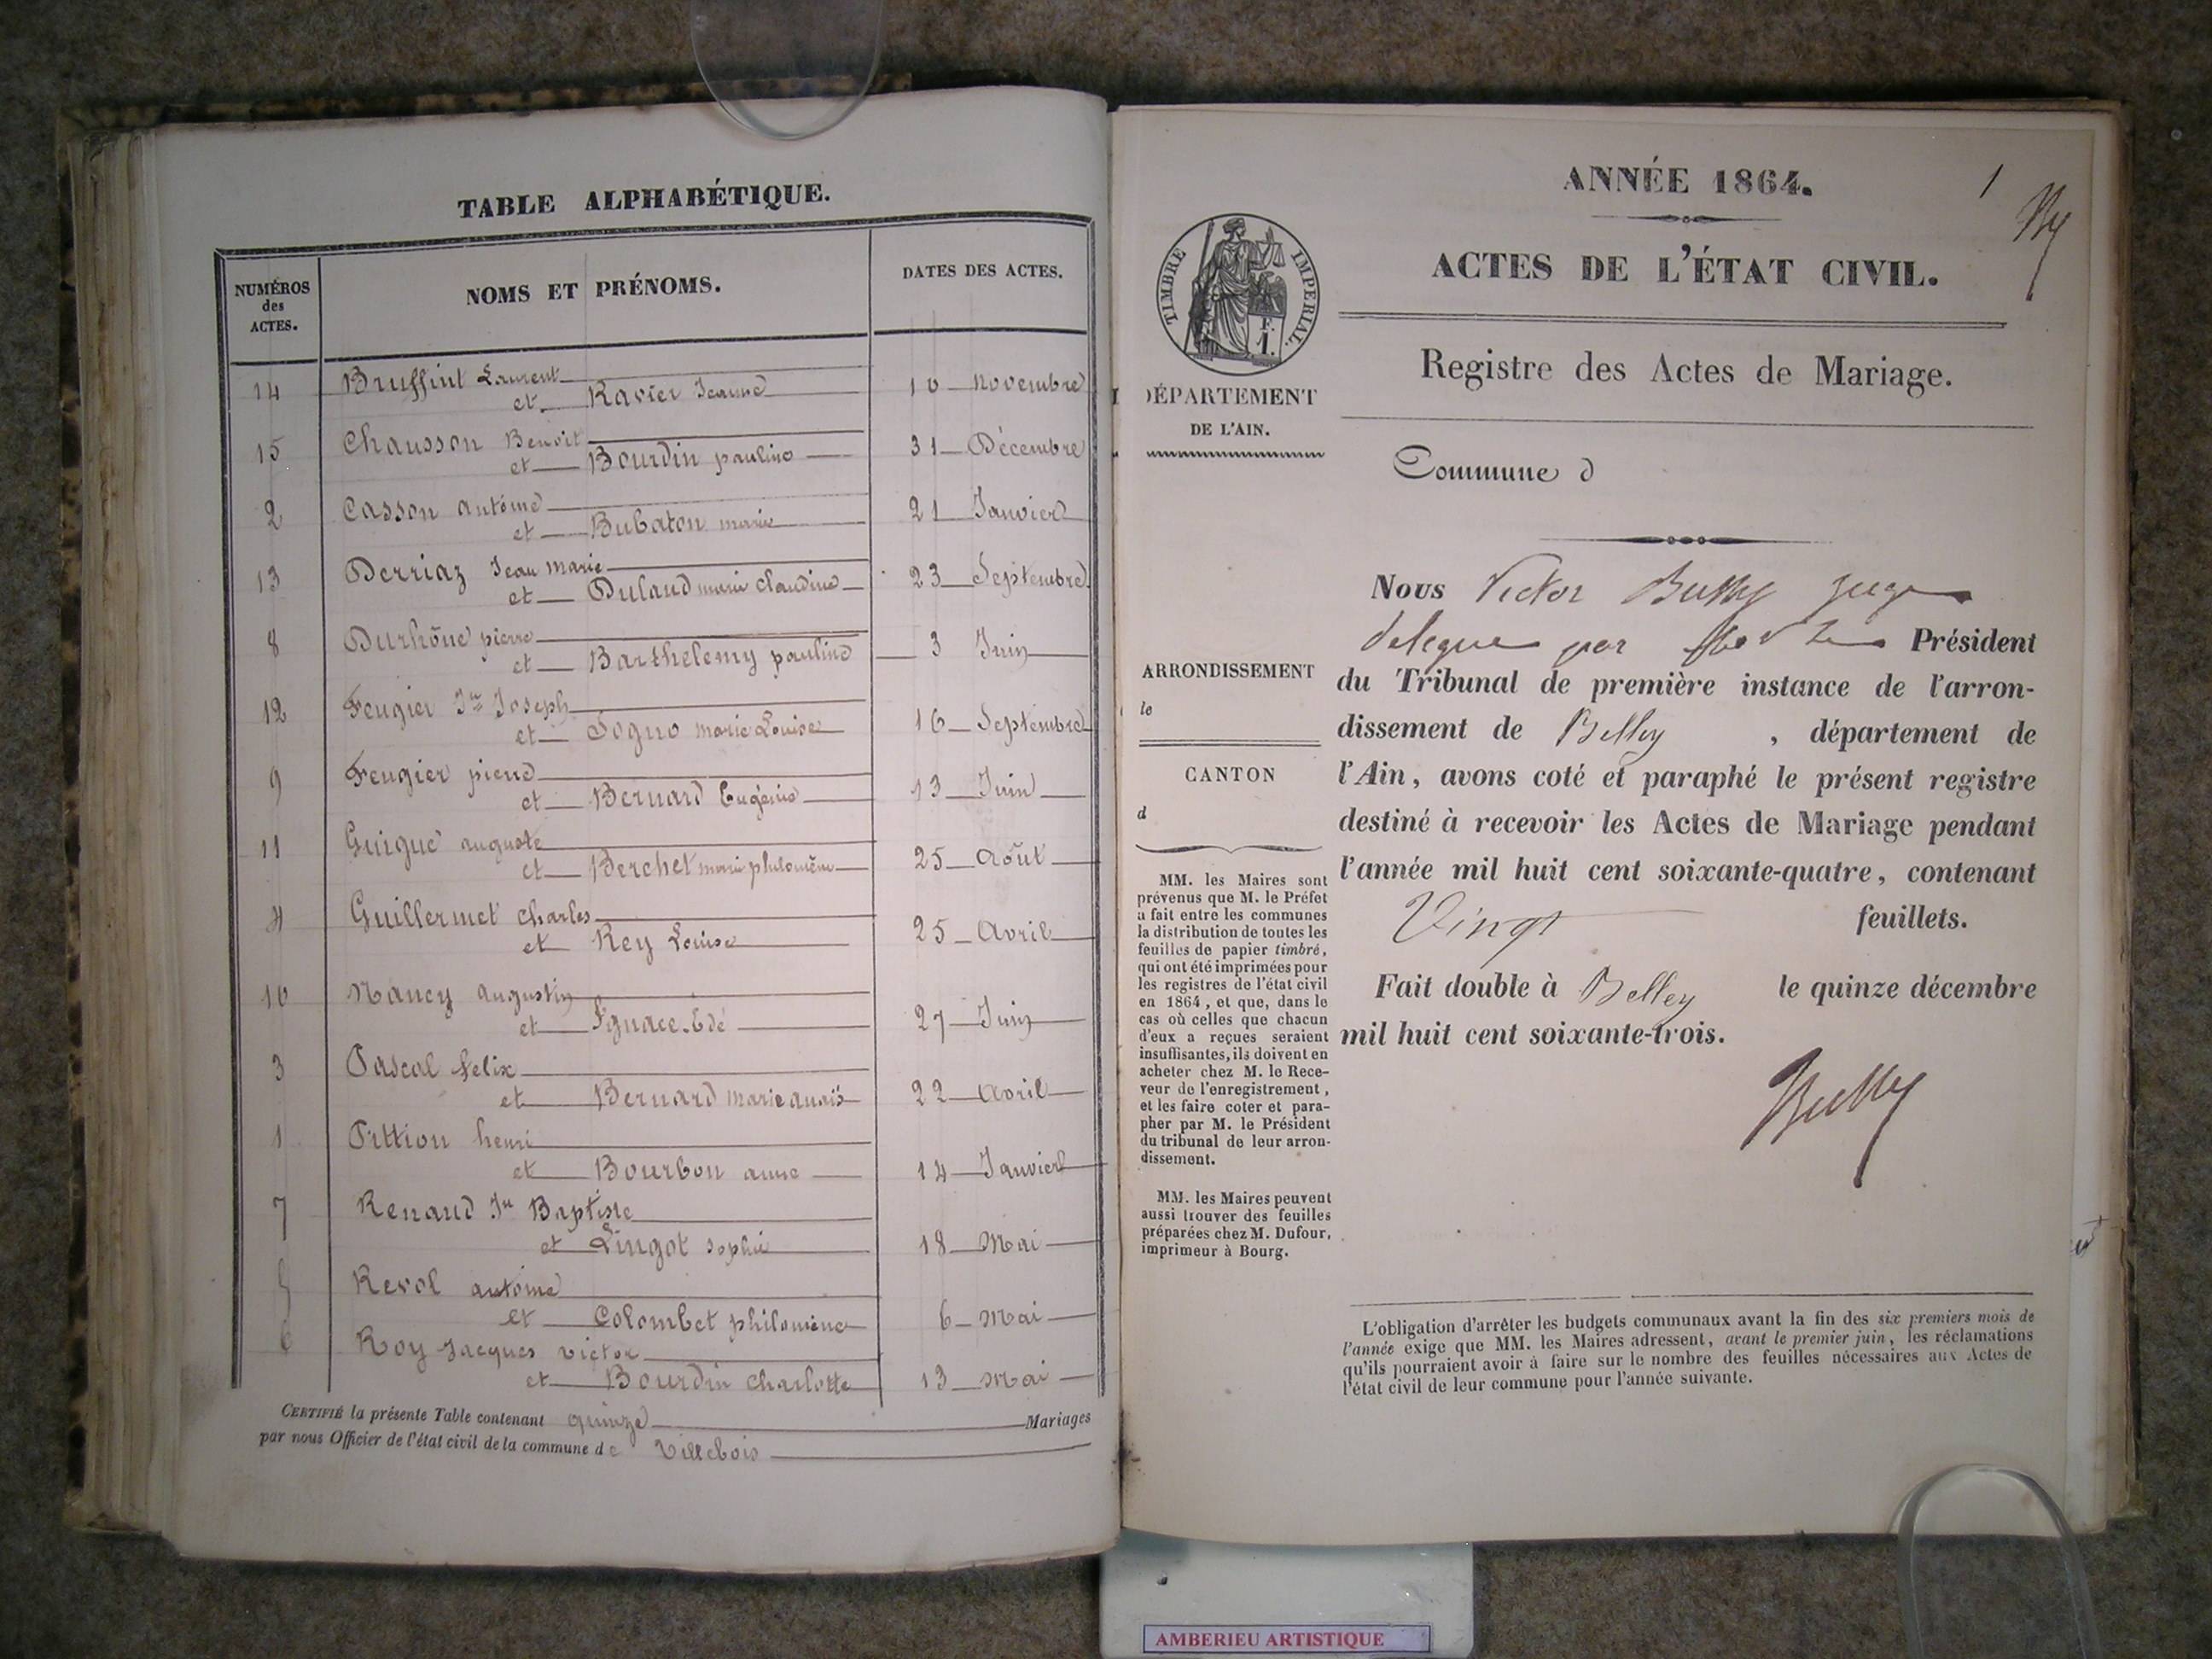 TABLE ALPHABÉTIQUE.
NUMÉROS
des
ACTES.
NOMS ET PRÉNOMS.
DATES DES ACTES.
14 Bruffint Laurent
et Ravier Jeanne 10 Novembre
15 Chausson Benoit
et Bourdin pauline 31 Décembre
2 Casson antoine
et Bubaton marie 21 Janvier
13 Derriaz Jean marie
et Dulaud marie claudine 23 Septembre
8 Durhône pierre
et Barthelemy pauline 3 Juin
12 Feugier Jn Joseph
et Sogno marie Louise 16 Septembre
9 Feugier pierre
et Bernard Eugénie 13 Juin
11 Guigue auguste
et Berchet marie philomène 25 Août
4 Guillermet charles
et Rey Louise 25 Avril
10 Nancy augustin
et Ignace Edé 27 Juin
3 Pascal felix
et Bernard marie anaïs 22 Avril
1 Pittion henri
et Bourbon anne 14 Janvier
7 Renaud Jn Baptiste
et Lingot sophie 18 Mai
5 Revol antoine
et Colombet philomène 6 Mai
6 Roy Jacques victor
et Bourdin charlotte 13 Mai
CERTIFIÉ la présente Table contenant quinze Mariages
par nous Officier de l'état civil de la commune de Villebois
ANNÉE 1864.
1
ACTES DE L'ÉTAT CIVIL.
TIMBRE IMPERIAL.
F.
1.
Registre des Actes de Mariage.
DÉPARTEMENT
DE L'AIN.
Commune d
ARRONDISSEMENT
CANTON
d
MM. les Maires sont
prévenus que M. le Préfet
a fait entre les communes
la distribution de toutes les
feuilles de papier timbré,
qui ont été imprimées pour
les registres de l'état civil
en 1864, et que, dans le
cas où celles que chacun
d'eux a reçues seraient
insuffisantes, ils doivent en
acheter chez M. le Rece-
veur de l'enregistrement,
et les faire coter et para-
pher par M. le Président
du tribunal de leur arron-
dissement.
MM. les Maires peuvent
aussi trouver des feuilles
préparées chez M. Dufour,
imprimeur à Bourg.
Nous Victor Bussy juge
délégué par Président
du Tribunal de première instance de l'arron-
dissement de Belley, département de
l'Ain, avons coté et paraphé le présent registre
destiné à recevoir les Actes de Mariage pendant
l'année mil huit cent soixante-quatre, contenant
Vingt feuillets.
Fait double à Belley le quinze décembre
mil huit cent soixante-trois.
Bussy
L'obligation d'arrêter les budgets communaux avant la fin des six premiers mois de
l'année exige que MM. les Maires adressent, avant le premier juin, les réclamations
qu'ils pourraient avoir à faire sur le nombre des feuilles nécessaires aux Actes de
l'état civil de leur commune pour l'année suivante.
AMBERIEU ARTISTIQUE